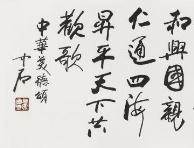 和興國親
仁通四海
昇平天下共
歡歌
中華美德頌
中石